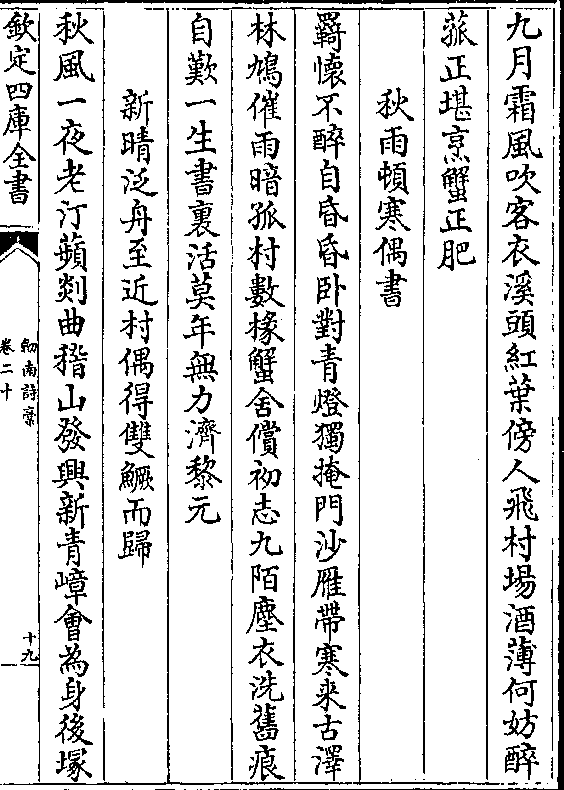 九月霜風吹客衣溪頭紅葉傍人飛村場酒薄何妨醉
菰正堪烹蟹正肥
秋雨頓寒偶書
羇懐不醉自昏昏卧對青燈獨掩門沙雁帶寒来古澤
林鳩催雨暗孤村數椽蟹舍償初志九陌塵衣洗舊痕
自歎一生書裏活莫年無力濟黎元
新晴泛舟至近村偶得雙鱖而歸
秋風一夜老汀蘋剡曲稽山發興新青嶂會為身後塚
欽定四庫全書
劒南詩藁
卷二十
十九